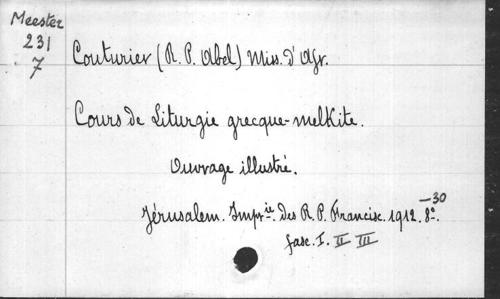 Meester
231
7
Couturier (R. P. Abel) Miss. d'Afr.
Cours de Liturgie grecque-melkite.
Ouvrage illustré.
Jérusalem. Impr ie. des R. P. Francisc. 1912-30 8°.
fasc. I. II III